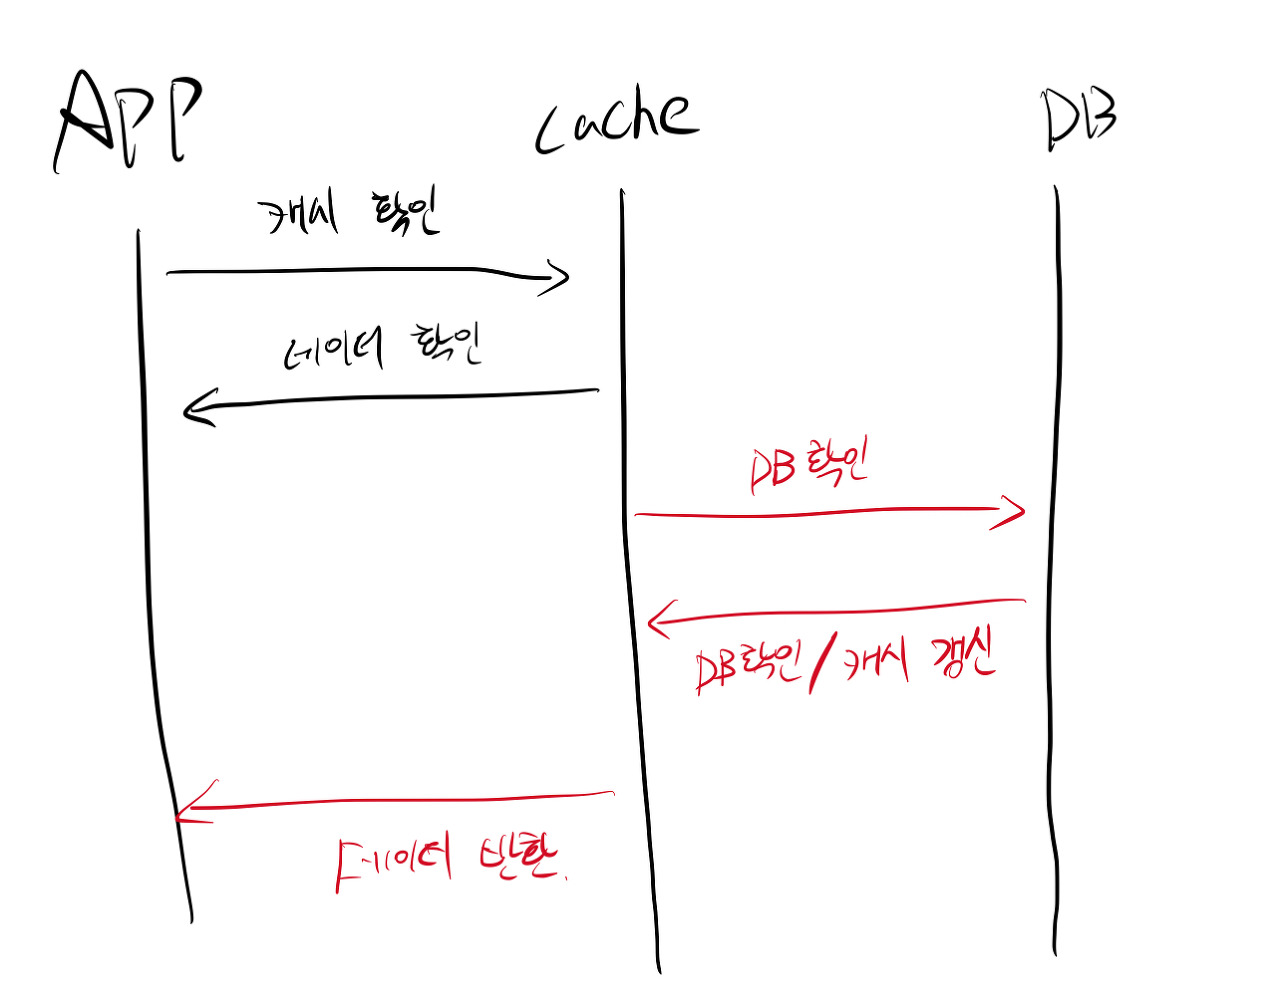 APP
Cache
DB
캐시 확인
데이터 확인
DB 확인
DB확인/캐시 갱신
데이터 반환.